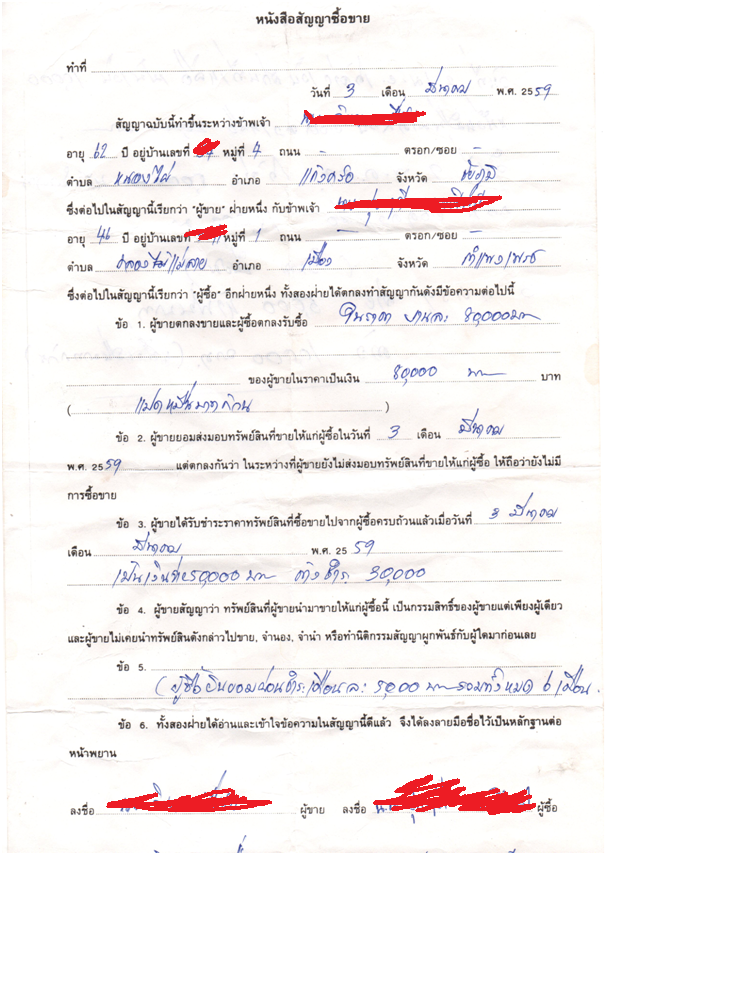 หนังสือสัญญาซื้อขาย
ทำที่
วันที่ 3 เดือน มีนาคม พ.ศ. 2559
สัญญาฉบับนี้ทำขึ้นระหว่างข้าพเจ้า
อายุ 62 ปี อยู่บ้านเลขที่ หมู่ที่ 4 ถนน - ตรอก/ซอย -
ตำบล หนองไผ่ อำเภอ แก้งคร้อ จังหวัด ชัยภูมิ
ซึ่งต่อไปในสัญญานี้เรียกว่า "ผู้ขาย" ฝ่ายหนึ่ง กับข้าพเจ้า
อายุ 46 ปี อยู่บ้านเลขที่ หมู่ที่ 1 ถนน - ตรอก/ซอย -
ตำบล คลองแม่ลาย อำเภอ เมือง จังหวัด กำแพงเพชร
ซึ่งต่อไปในสัญญานี้เรียกว่า "ผู้ซื้อ" อีกฝ่ายหนึ่ง ทั้งสองฝ่ายได้ตกลงทำสัญญากันดังมีข้อความต่อไปนี้
ข้อ 1. ผู้ขายตกลงขายและผู้ซื้อตกลงรับซื้อ ในราคา 80,000 บาท
ของผู้ขายในราคาเป็นเงิน 80,000 บาท บาท
( แปดหมื่นบาทถ้วน )
ข้อ 2. ผู้ขายยอมส่งมอบทรัพย์สินที่ขายให้แก่ผู้ซื้อในวันที่ 3 เดือน มีนาคม
พ.ศ. 2559 แต่ตกลงกันว่า ในระหว่างที่ผู้ขายยังไม่ส่งมอบทรัพย์สินที่ขายให้แก่ผู้ซื้อ ให้ถือว่ายังไม่มี
การซื้อขาย
ข้อ 3. ผู้ขายได้รับชำระราคาทรัพย์สินที่ซื้อขายไปจากผู้ซื้อครบถ้วนแล้วเมื่อวันที่ 3 มีนาคม
เดือน มีนาคม พ.ศ. 25 59
เป็นเงิน 50,000 บาท ค้างชำระ 30,000
ข้อ 4. ผู้ขายสัญญาว่า ทรัพย์สินที่ผู้ขายนำมาขายให้แก่ผู้ซื้อนี้ เป็นกรรมสิทธิ์ของผู้ขายแต่เพียงผู้เดียว
และผู้ขายไม่เคยนำทรัพย์สินดังกล่าวไปขาย, จำนอง, จำนำ หรือทำนิติกรรมสัญญาผูกพันธ์กับผู้ใดมาก่อนเลย
ข้อ 5.
(ผู้ซื้อยินยอมผ่อนชำระเดือนละ 5,000 บาท รวมทั้งหมด 6 เดือน.
ข้อ 6. ทั้งสองฝ่ายได้อ่านและเข้าใจข้อความในสัญญานี้ดีแล้ว จึงได้ลงลายมือชื่อไว้เป็นหลักฐานต่อ
หน้าพยาน
ลงชื่อ ผู้ขาย ลงชื่อ ผู้ซื้อ